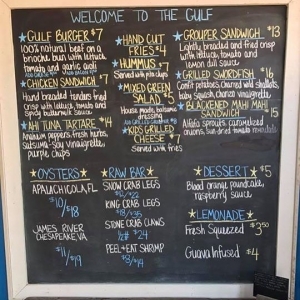 WELCOME TO THE GULF
GULF BURGER $7
100% natural beef on a
brioche bun with lettuce,
tomato and garlic aioli
CHICKEN SANDWICH $7
Hand breaded tenders fried
crisp with lettuce, tomato and
spicy buttermilk sauce
AHI TUNA TARTARE $14
peppers, fresh herbs,
satsuma-soy vinaigrette,
purple chips
HAND CUT
FRIES $4
HUMMUS $7
Served with pita chips
MIXED GREEN
SALAD $5
House made balsamic
dressing
KIDS GRILLED
CHEESE $7
Served with fries
GROUPER SANDWICH $13
Lightly breaded and fried crisp
with lettuce, tomato and
lemon dill sauce
GRILLED SWORDFISH $16
Confit potatoes, charred wild shallots,
baby squash, vinaigrette
BLACKENED MAHI MAHI
SANDWICH $15
Alfalfa sprouts, caramelized
onions, sun-dried tomato
OYSTERS
APALACHICOLA, FL
$10/$18
JAMES RIVER
CHESAPEAKE, VA
$11/$19
RAW BAR
SNOW CRAB LEGS
KING CRAB LEGS
STONE CRAB CLAWS
$24
PEEL + EAT SHRIMP
DESSERT $5
Blood orange poundcake,
raspberry sauce
LEMONADE
Fresh Squeezed $3.50
Guava Infused $4